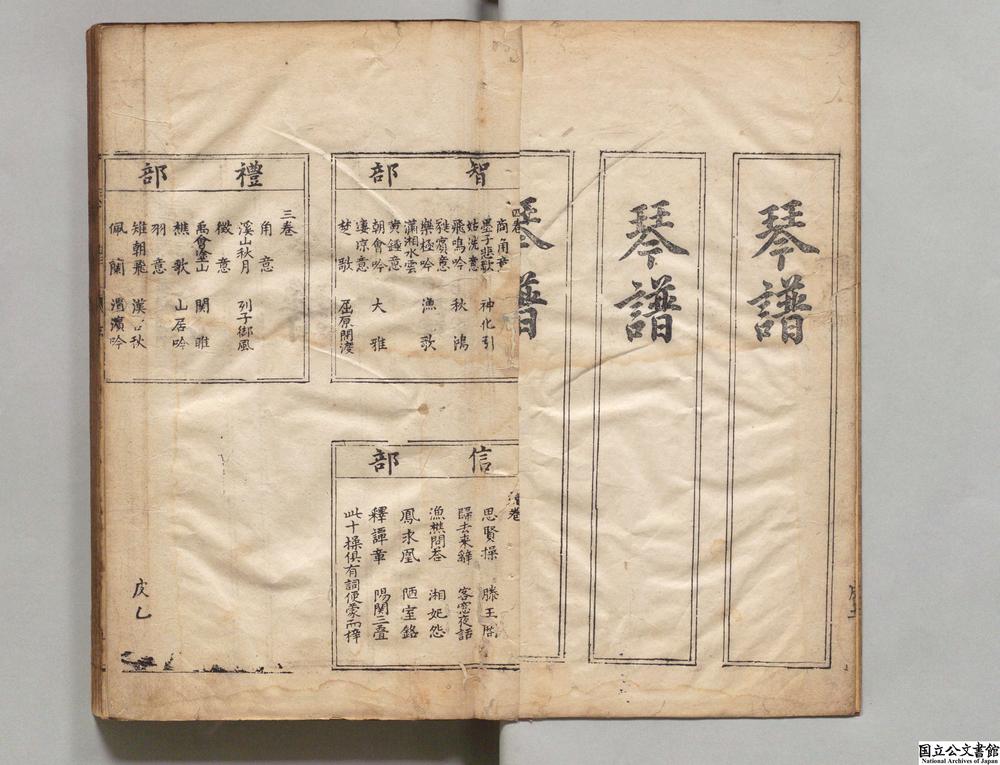 琴譜
琴譜
琴譜
智部
四卷
商角意
墨子悲歌 神化引
姑洗意
飛鳴吟 秋鴻
蕤賓意
樂極吟 漁歌
瀟湘水雲
黄鍾意
朝會吟 大雅
凄凉意
楚歌 屈原問渡
信部
卷
思賢操 滕王閣
歸去來辭 客窓夜話
漁樵問荅 湘妃怨
鳳求凰 陋室銘
釋譚章 陽関三疊
此十操俱有詞便蒙而梓
禮部
三卷
角意
溪山秋月 列子御風
徵意
禹會塗山 関雎
樵歌 山居吟
羽意
雉朝飛 漢宮秋
佩蘭 渭濱吟
国立公文書館
National Archives of Japan